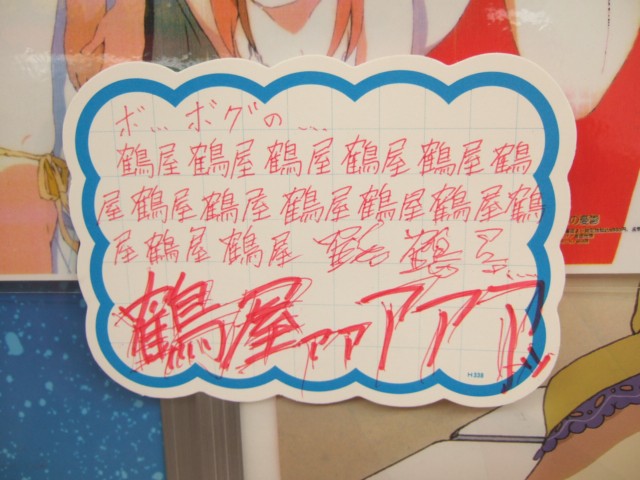 ボ… ボグの…
鶴屋鶴屋鶴屋鶴屋鶴屋鶴
屋鶴屋鶴屋鶴屋鶴屋鶴屋鶴
屋鶴屋鶴屋 鶴屋 鶴屋…
鶴屋ァァアアアッ
H338